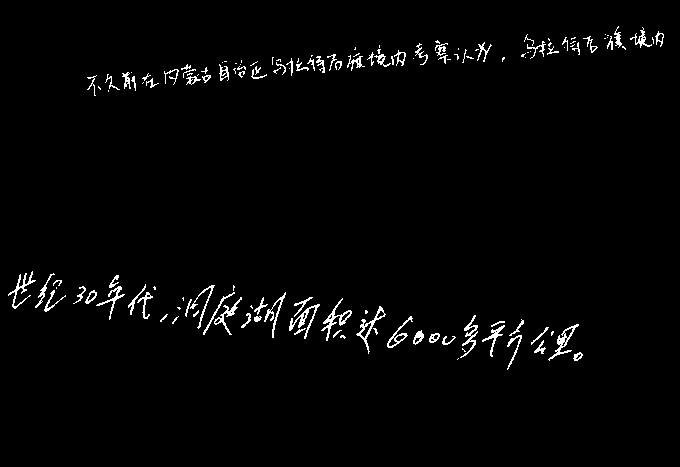 不久前在内蒙古自治区乌拉特后旗境内考察认为，乌拉特后旗境内
世纪30年代，洞庭湖面积达6000多平方公里。